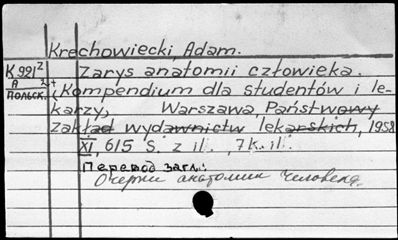 Krechowiecki, Adam.
К 921²
А
польск.
Zarys anatomii człowieka.
(Kompendium dla studentów i le-
karzy, Warszawa Państwowy
zakład wydawnictw lekarskich, 1958
XI, 615 s. z il., 7 k. il.
Перевод загл.:
Очерки анатомии человека.